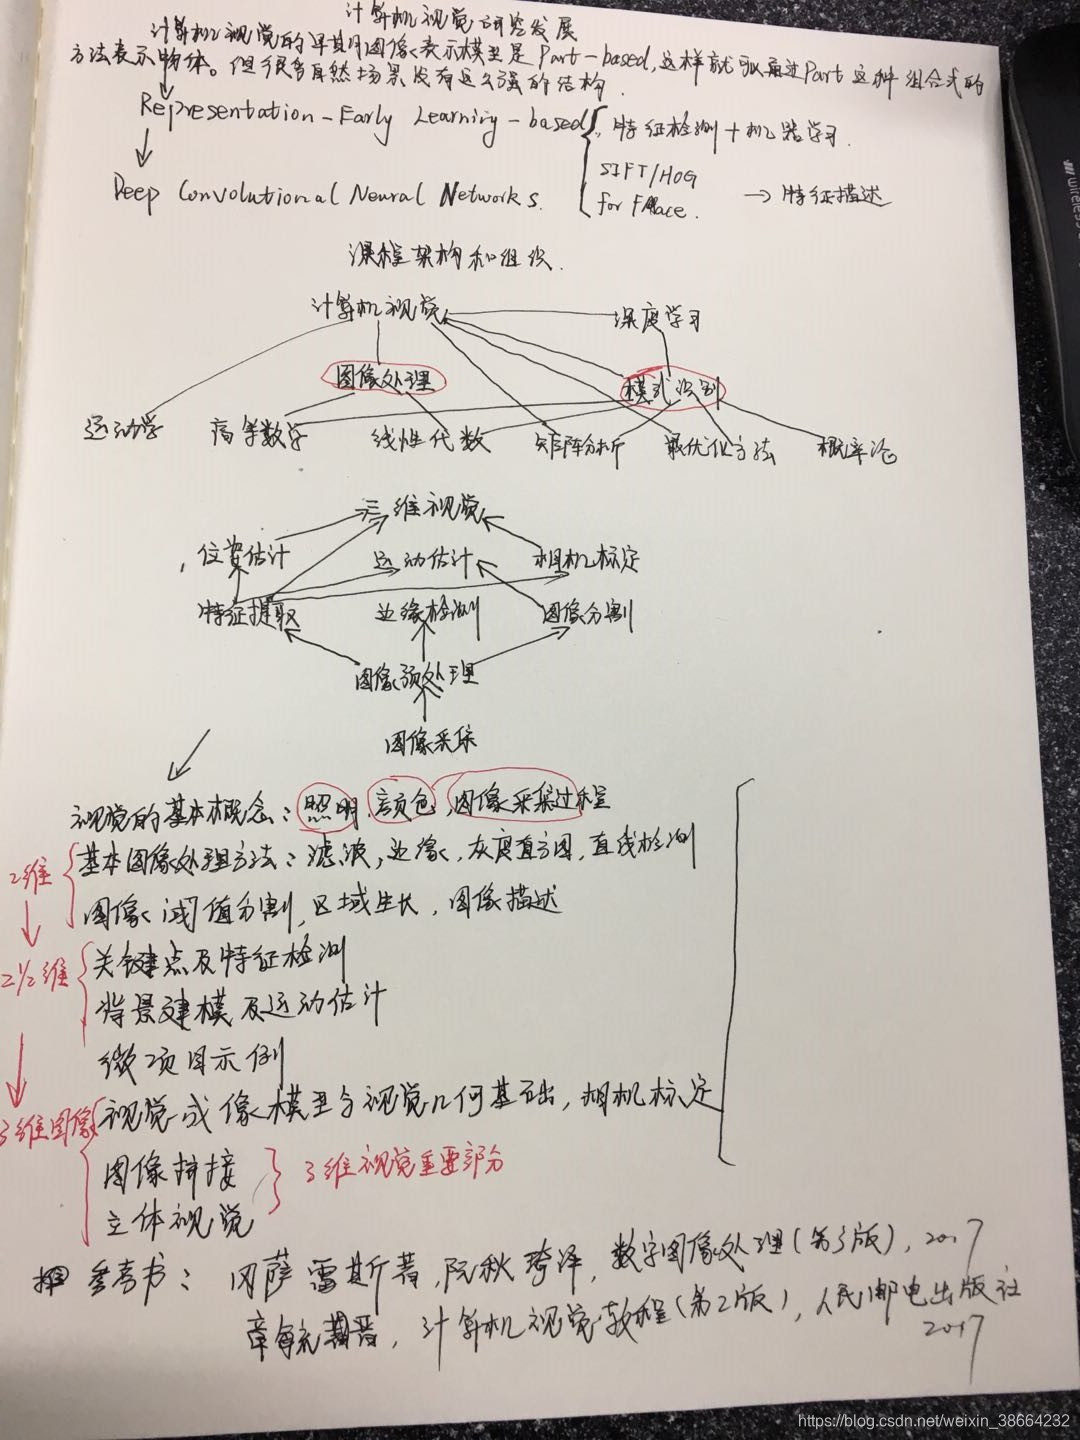 计算机视觉研究发展
计算机视觉的早期图像表示模型是Part-based,这样就可以通过Part这种组合式的
方法表示物体。但很多自然场景没有这么强的结构.
Representation-Early Learning-based 特征检测+机器学习.
SIFT/HOG
for Face. → 特征描述
Deep Convolutional Neural Networks.
课程架构和组织.
计算机视觉 深度学习
图像处理 模式识别
运动学 高等数学 线性代数 矩阵分析 最优化方法 概率论
三维视觉
位姿估计 运动估计 相机标定
特征提取 边缘检测 图像分割
图像预处理
图像采集
视觉的基本概念:照明,颜色,图像采集过程
2维 基本图像处理方法:滤波,边缘,灰度直方图,直线检测
图像阈值分割,区域生长,图像描述
2 1/2维 关键点及特征检测
背景建模及运动估计
微项目示例
3维图像 视觉成像模型与视觉几何基础,相机标定
图像拼接
3维视觉重要部分
立体视觉
参考书: 冈萨雷斯著,阮秋琦译,数字图像处理(第3版),2017
章毓晋著,计算机视觉教程(第2版),人民邮电出版社
2017
wireless
https://blog.csdn.net/weixin_38664232